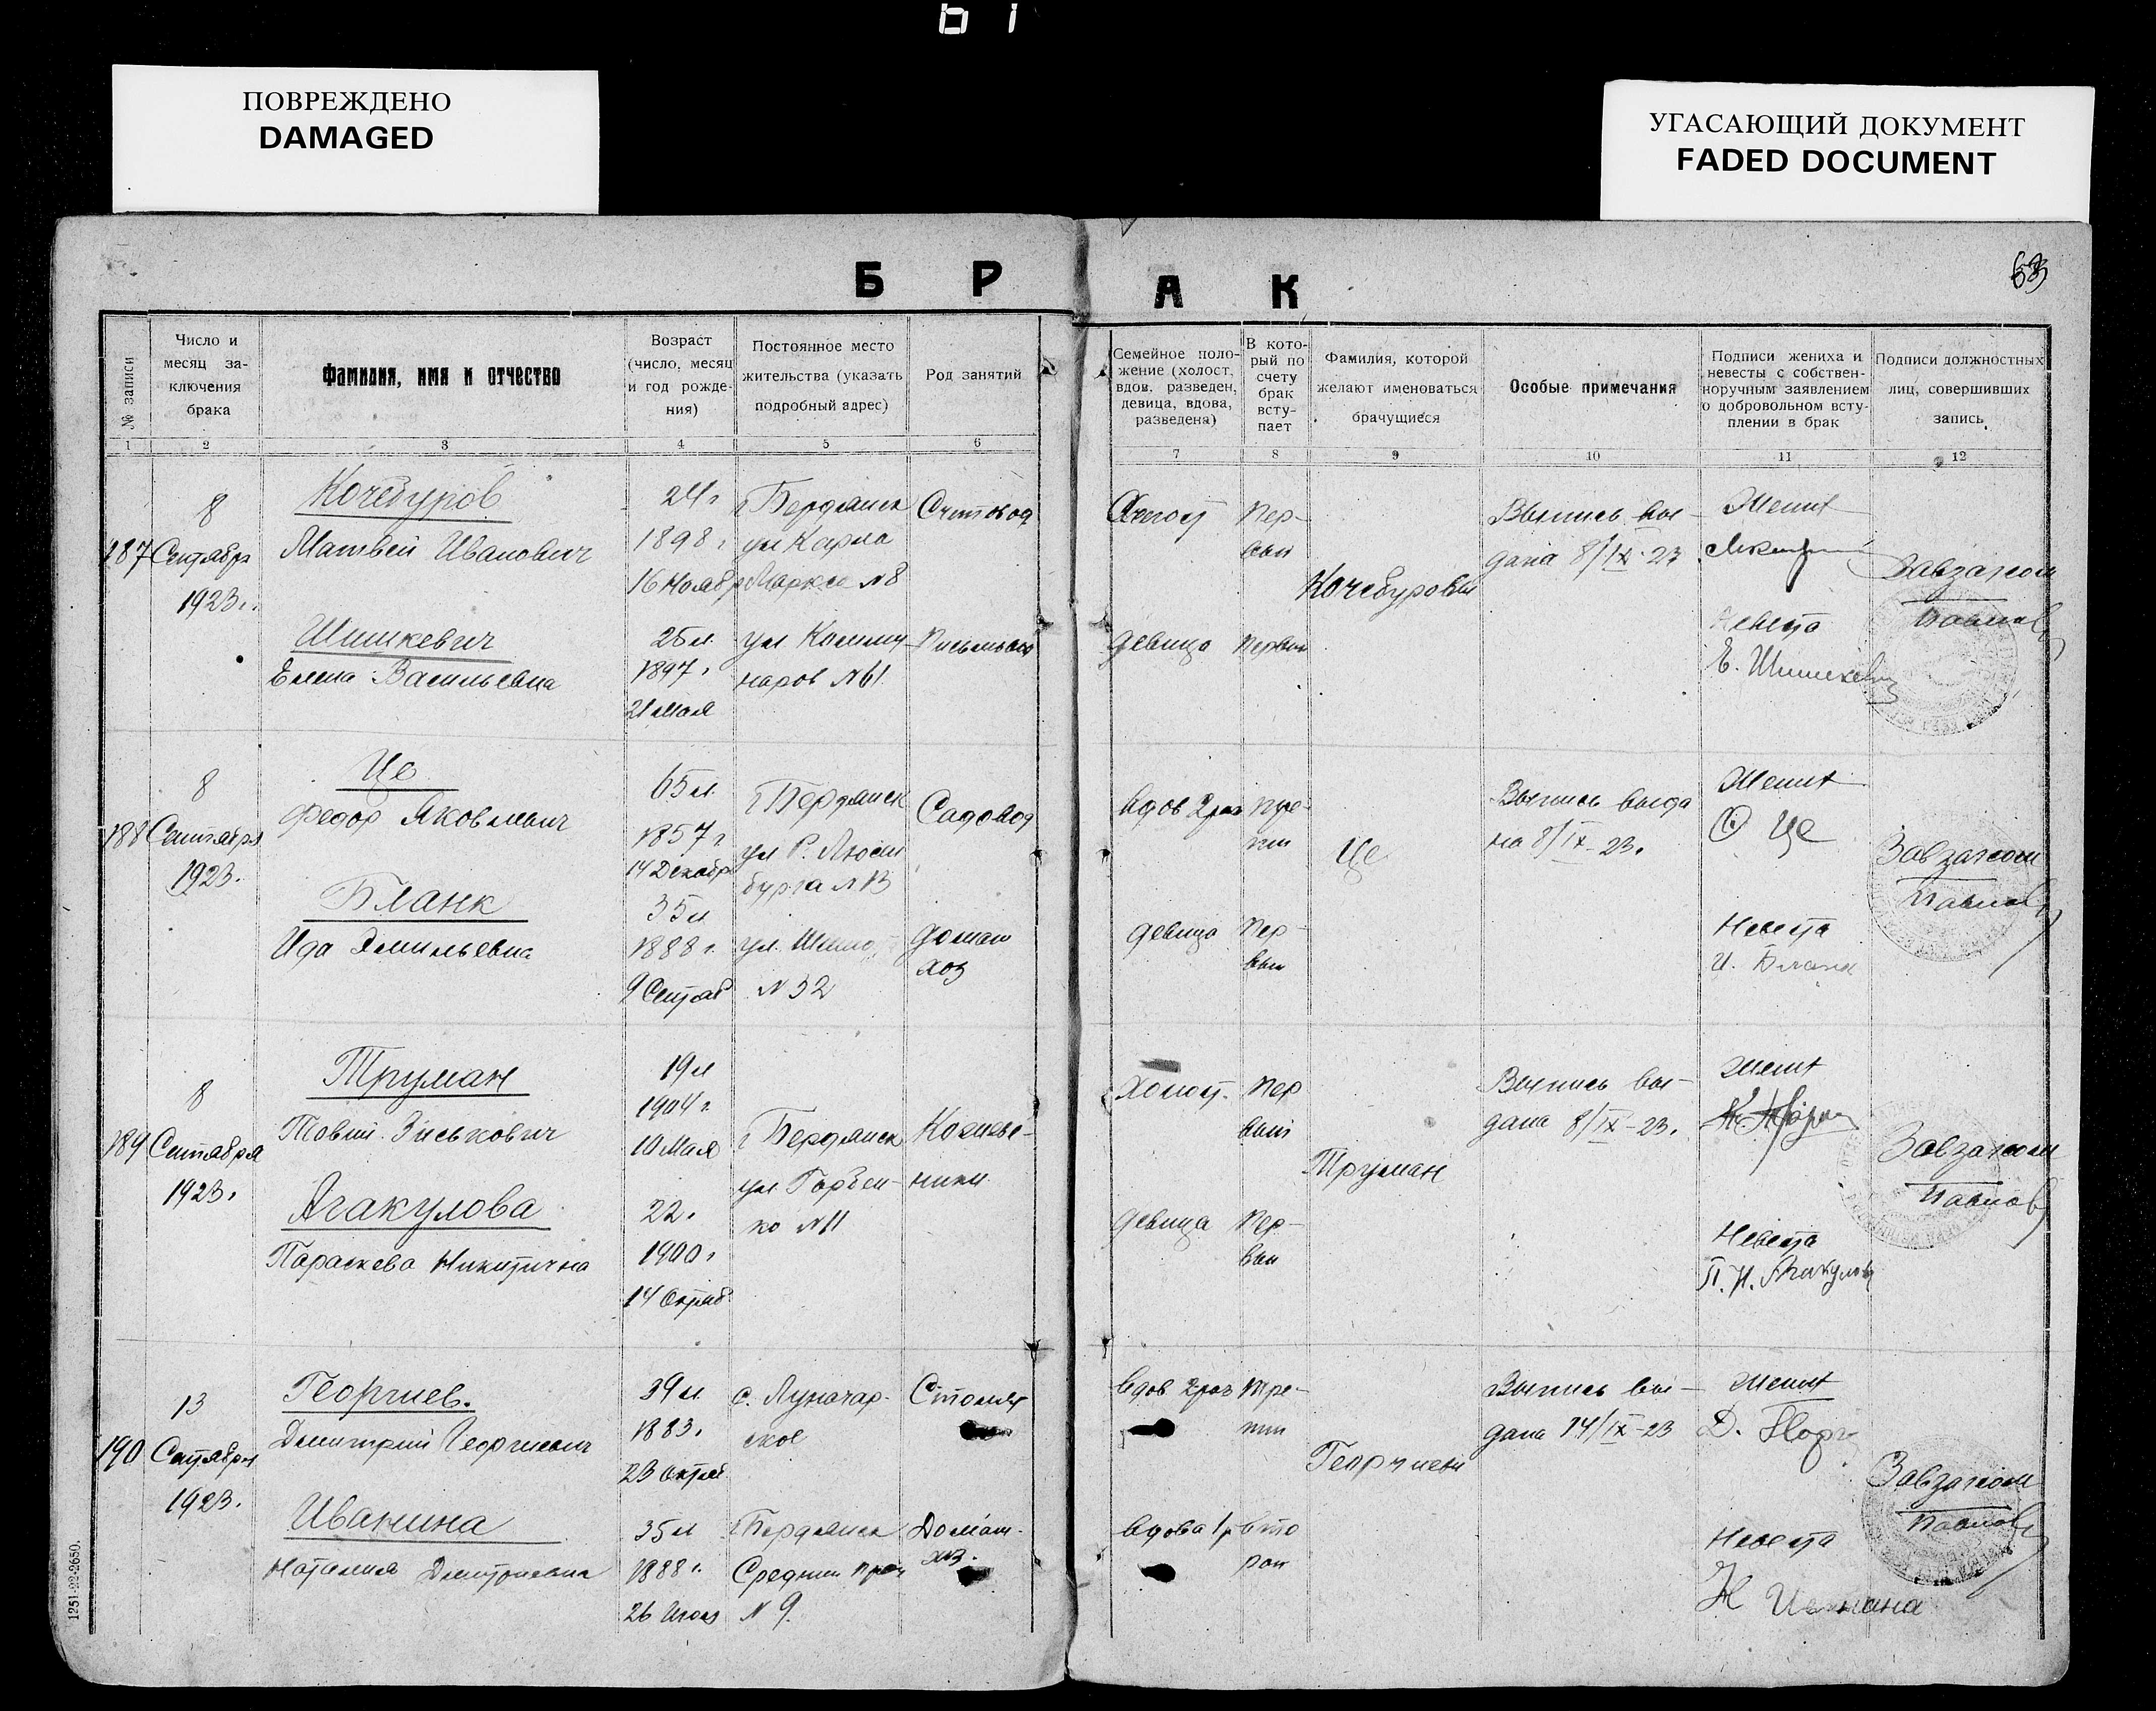 ПОВРЕЖДЕНО
DAMAGED
УГАСАЮЩИЙ ДОКУМЕНТ
FADED DOCUMENT
Б Р А К
63
№ записи
Число и
месяц за-
ключения
брака
Фамилия, имя и отчество
Возраст
(число, месяц
и год рожде-
ния)
Постоянное место
жительства (указать
подробный адрес)
Род занятий
Семейное поло-
жение (холост,
вдов, разведен,
девица, вдова,
разведена)
В кото-
рый по
счету
брак
всту-
пает
Фамилия, которой
желают именоваться
брачущиеся
Особые примечания
Подписи жениха и
невесты с собствен-
норучным заявлением
о добровольном всту-
плении в брак
Подписи должностных
лиц, совершивших
запись
1 2 3 4 5 6 7 8 9 10 11 12
187
8
Сентября
1923 г.
Кочебуров
Матвей Иванович
24 г
1898 г
16 Ноябр
г Бердянск
ул Карла
Маркса №8
Счетовод
Холост
Пер-
вый
Кочебуровы
Выпись вы-
дана 8/IX-23
Жених
Завзагсом
Павлов
Шишкевич
Елена Васильевна
25 л.
1897 г
21 мая
ул Комму-
наров №61
девица
первый
Невеста
Е. Шишкевич
188
8
Сентября
1923.
Це
Федор Яковлевич
65 л.
1857 г
14 Декабр
г Бердянск
ул Р. Люксем
бурга №13
Садовод
вдов 2 раз
тре-
тий
Це
Выпись выда
на 8/IX-23.
Жених
Ф Це
Завзагсом
Павлов
Бланк
Ида Эмильевна
35 л
1888 г.
9 Сентяб
ул.
№32
домаш
хоз
девица
Пер-
вый
Невеста
И. Бланк
189
8
Сентября
1923.
Труман
Товий Зиськович
19 л
1904 г
10 Мая
г Бердянск
ул Горбен-
ко №11
Кожеве-
ники
Холост.
Пер
вый
Труман
Выпись вы-
дана 8/IX-23.
Жених
Завзагсом
Павлов
Агакулова
Параскева Никитична
22.
1900 г
14 Октяб
девица
Пер-
вый
Невеста
П. Н. Агакулова
190
13
Сентября
1923.
Георгиев.
Дмитрий Георгиевич
39 л.
1883.
23 октяб
с. Луначар-
ское
Столяр
вдов 2 раз
Тре-
тий
Георгиевы
Выпись вы-
дана 14/IX-23
Жених
Завзагсом
Павлов
Иванина
Наталия Дмитриевна
35 л
1888 г.
26
г Бердянск
Средний
№ 9.
Домаш.
хоз.
вдова 1 р
вто
рой
Невеста
Н Иванина
1251-22-2650.